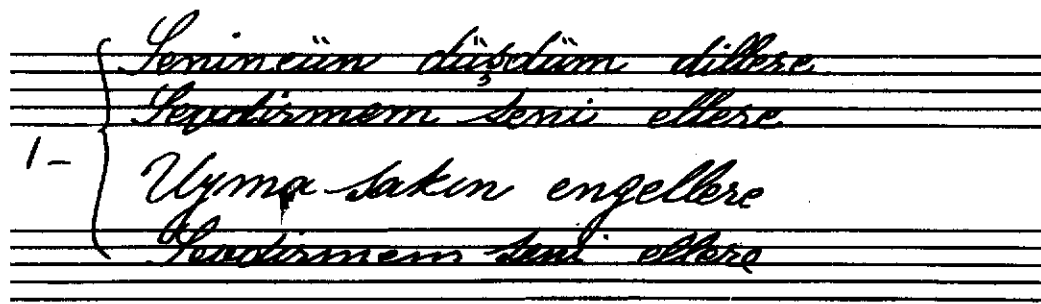 Seninçün düşdüm dillere
Sevdirmem seni ellere
1- Uyma sakın engellere
Sevdirmem seni ellere